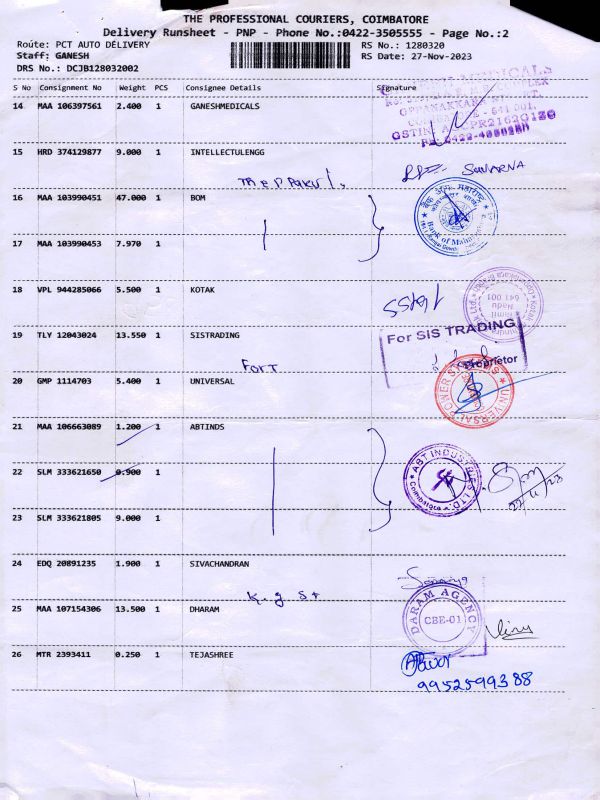 THE PROFESSIONAL COURIERS, COIMBATORE
Delivery Runsheet - PNP - Phone No.:0422-3505555 - Page No.:2
Route: PCT AUTO DELIVERY RS No.: 1280320
Staff: GANESH RS Date: 27-Nov-2023
DRS No.: DCJB128032002
S No Consignment No Weight PCS Consignee Details Signature
14 MAA 106397561 2.400 1 GANESHMEDICALS
MEDICALS
641 001.
15 HRD 374129877 9.000 1 INTELLECTULENGG
SUVARNA
16 MAA 103990451 47.000 1 BOM
Bank of
17 MAA 103990453 7.970 1
18 VPL 944285066 5.500 1 KOTAK
641 001
19 TLY 12043024 13.550 1 SISTRADING
For SIS TRADING
Proprietor
Fort
20 GMP 1114703 5.400 1 UNIVERSAL
UNIVERSAL POWER
21 MAA 106663089 1.200 1 ABTINDS
22 SLM 333621650 0.900 1
ABT INDUSTRIES LTD.
Coimbatore
27/11/23
23 SLM 333621805 9.000 1
24 EDQ 20891235 1.900 1 SIVACHANDRAN
K.g St
25 MAA 107154306 13.500 1 DHARAM
DARAM AGENCY
CBE-01
26 MTR 2393411 0.250 1 TEJASHREE
9952599388